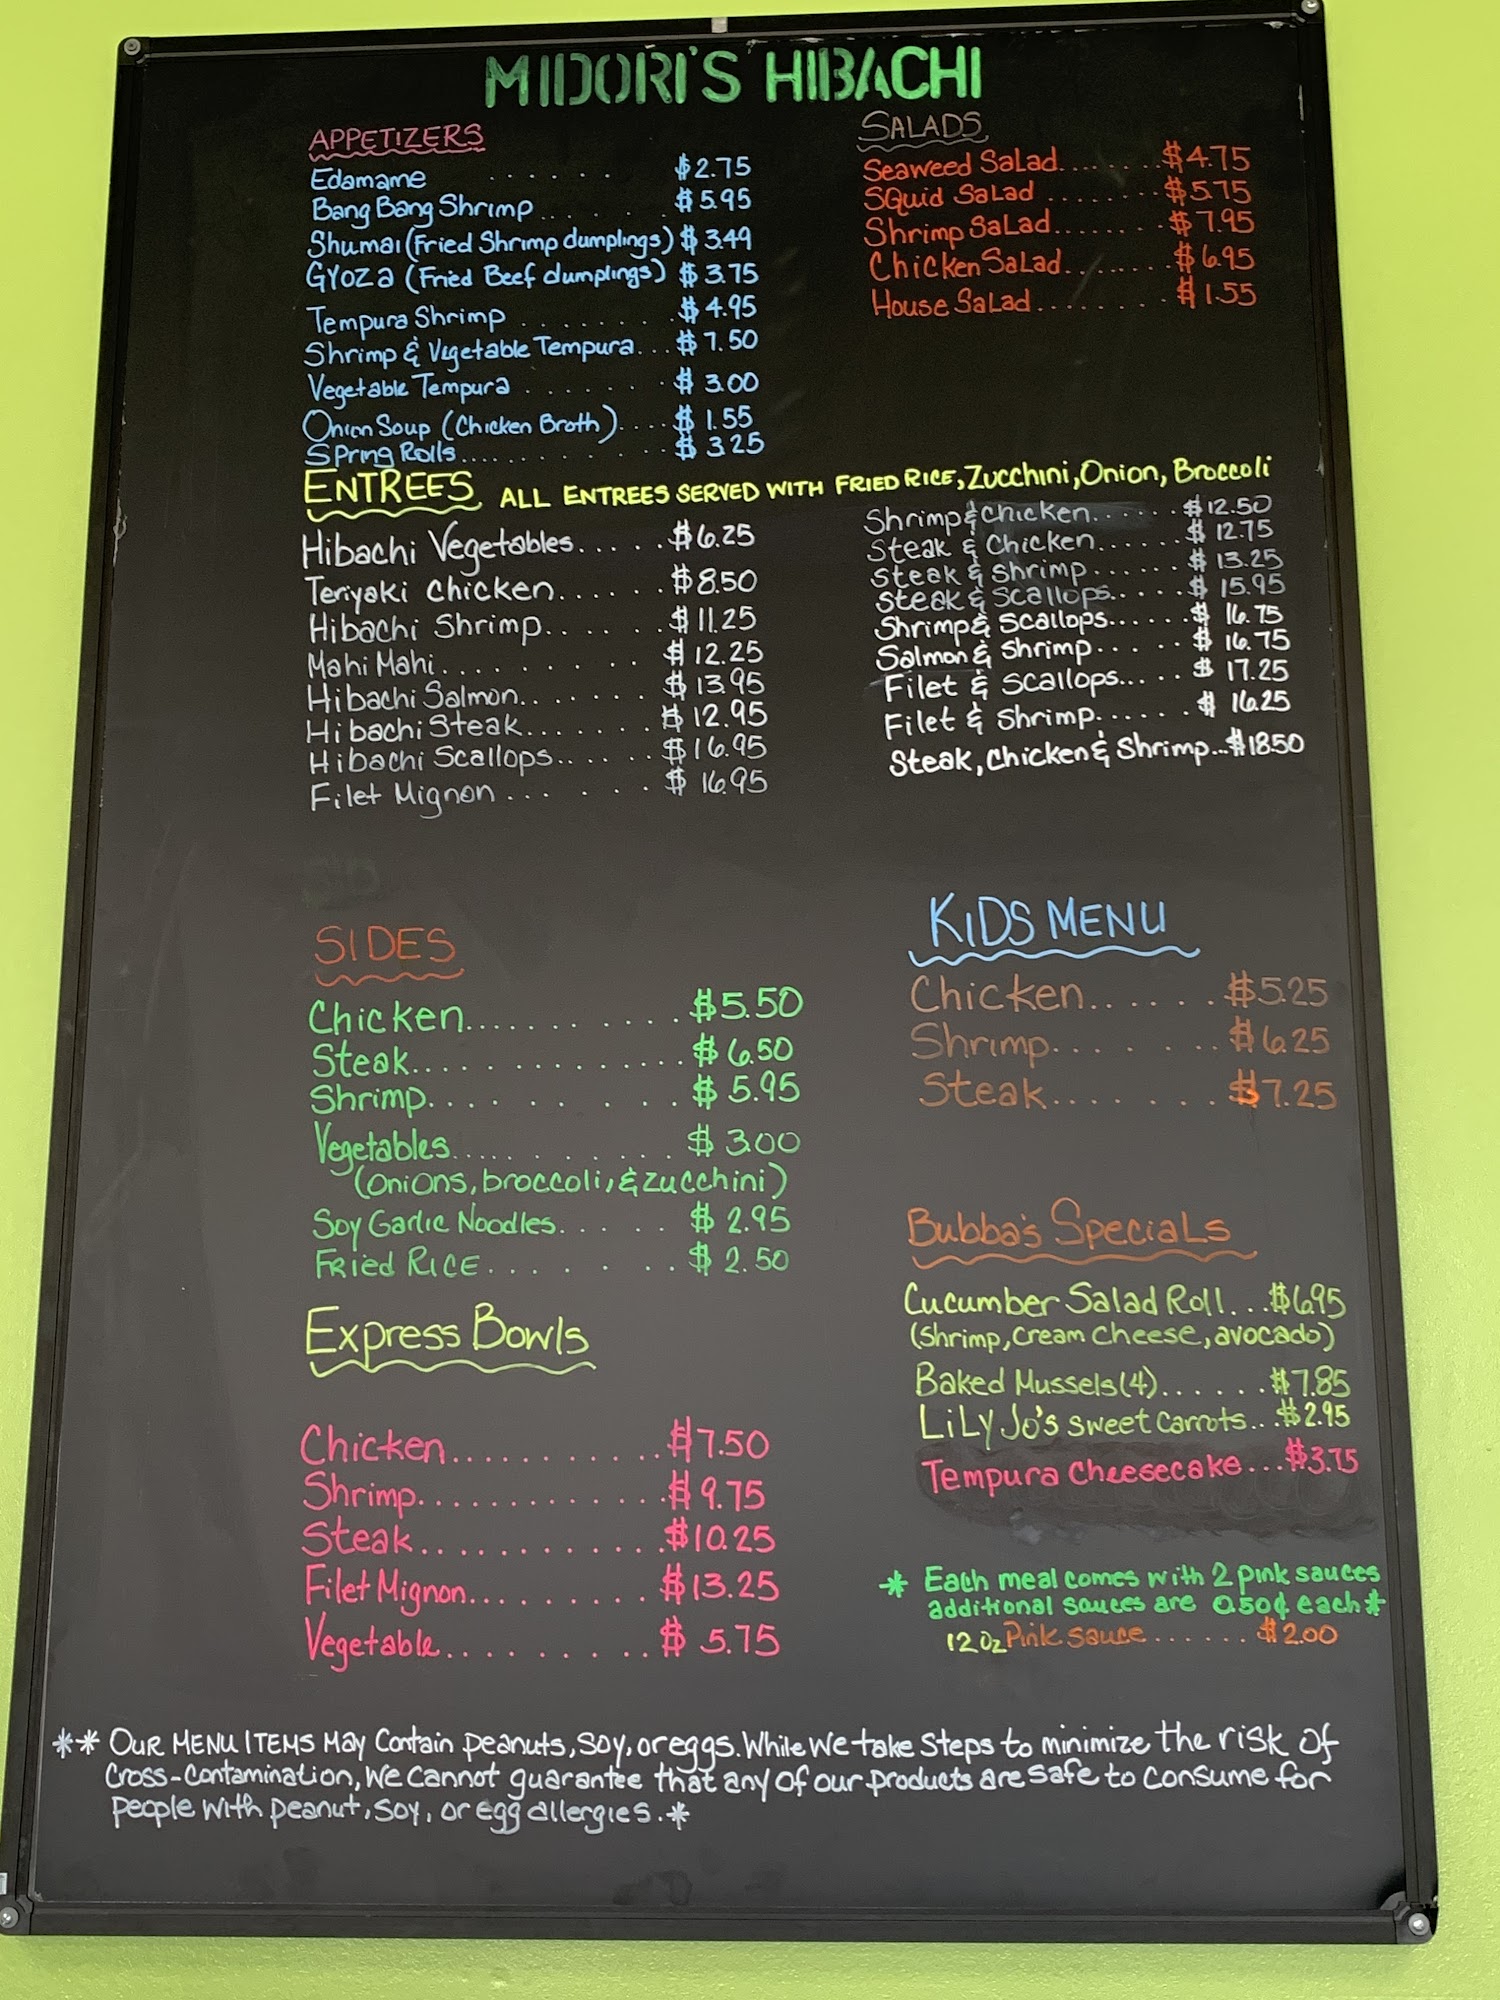 MIDORI'S HIBACHI
APPETIZERS
Edamame ...... $2.75
Bang Bang Shrimp...... $5.95
Shumai (Fried Shrimp dumplings) $3.49
Gyoza (Fried Beef dumplings) $3.75
Tempura Shrimp ....... $4.95
Shrimp & Vegetable Tempura... $7.50
Vegetable Tempura ....... $3.00
Onion Soup (Chicken Broth).... $1.55
Spring Rolls............ $3.25
SALADS
Seaweed Salad....... $4.75
Squid Salad ....... $5.75
Shrimp Salad....... $7.95
Chicken Salad....... $6.95
House Salad....... $1.55
ENTREES ALL ENTREES SERVED WITH FRIED RICE, Zucchini, Onion, Broccoli
Hibachi Vegetables..... $6.25
Teriyaki Chicken...... $8.50
Hibachi Shrimp...... $11.25
Mahi Mahi......... $12.25
Hibachi Salmon....... $13.95
Hibachi Steak....... $12.95
Hibachi Scallops...... $16.95
Filet Mignon...... $16.95
Shrimp & Chicken...... $12.50
Steak & Chicken...... $12.75
Steak & Shrimp...... $13.25
Steak & Scallops..... $15.95
Shrimp & Scallops...... $16.75
Salmon & Shrimp..... $16.75
Filet & Scallops..... $17.25
Filet & Shrimp...... $16.25
Steak, Chicken & Shrimp...$18.50
SIDES
Chicken........... $5.50
Steak.............. $6.50
Shrimp......... $5.95
Vegetables......... $3.00
(onions, broccoli, & zucchini)
Soy Garlic Noodles...... $2.95
Fried RICE....... $2.50
KIDS MENU
Chicken...... $5.25
Shrimp....... $6.25
Steak....... $7.25
Bubba's Specials
Cucumber Salad Roll...$6.95
(Shrimp, Cream Cheese, avocado)
Baked Mussels (4)...... $7.85
LiLy Jo's Sweet Carrots...$2.95
Tempura Cheesecake...$3.75
Express Bowls
Chicken...........$7.50
Shrimp............$9.75
Steak............$10.25
Filet Mignon.........$13.25
Vegetable.........$ 5.75
* Each meal comes with 2 pink sauces
additional sauces are 0.50¢ each *
12 oz Pink sauce...... $2.00
** Our MENU ITEMS May Contain peanuts, soy, or eggs. While we take steps to minimize the risk of
Cross-Contamination, We Cannot guarantee that any of our products are safe to consume for
people with peanut, soy, or egg allergies.*